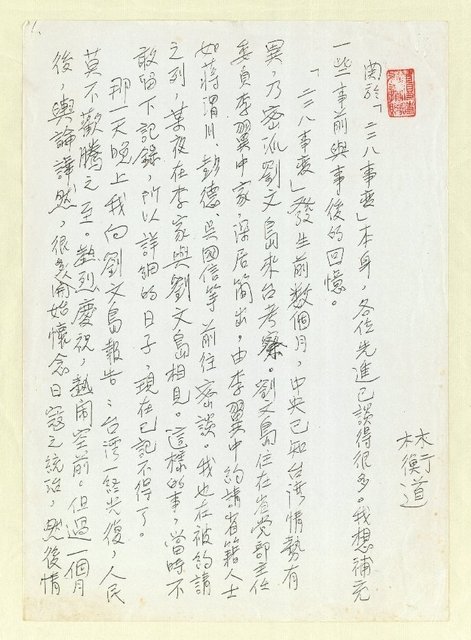 林衡道
關於「二二八事变」本身，各位先進已談得很多。我想補充
一些事前與事後的回憶。
「二二八事变」發生前数個月，中央已知台湾情勢有
異，乃密派劉文島來台考察。劉文島住在省党部主任
委員李翼中家，深居簡出，由李翼中約請省籍人士
如蒋渭川、彭德、吳國信等前往密談。我也在被約請
之列，某夜在李家與劉文島相見。這樣的事，當時不
敢留下記錄，所以詳細的日子，現在已記不得了。
那一天晚上我向劉文島報告：台湾一経光復，人民
莫不歡騰之至。熱烈慶祝，熱鬧空前。但過一個月
後，輿論譁然，很多人開始懷念日寇之統治，然後情